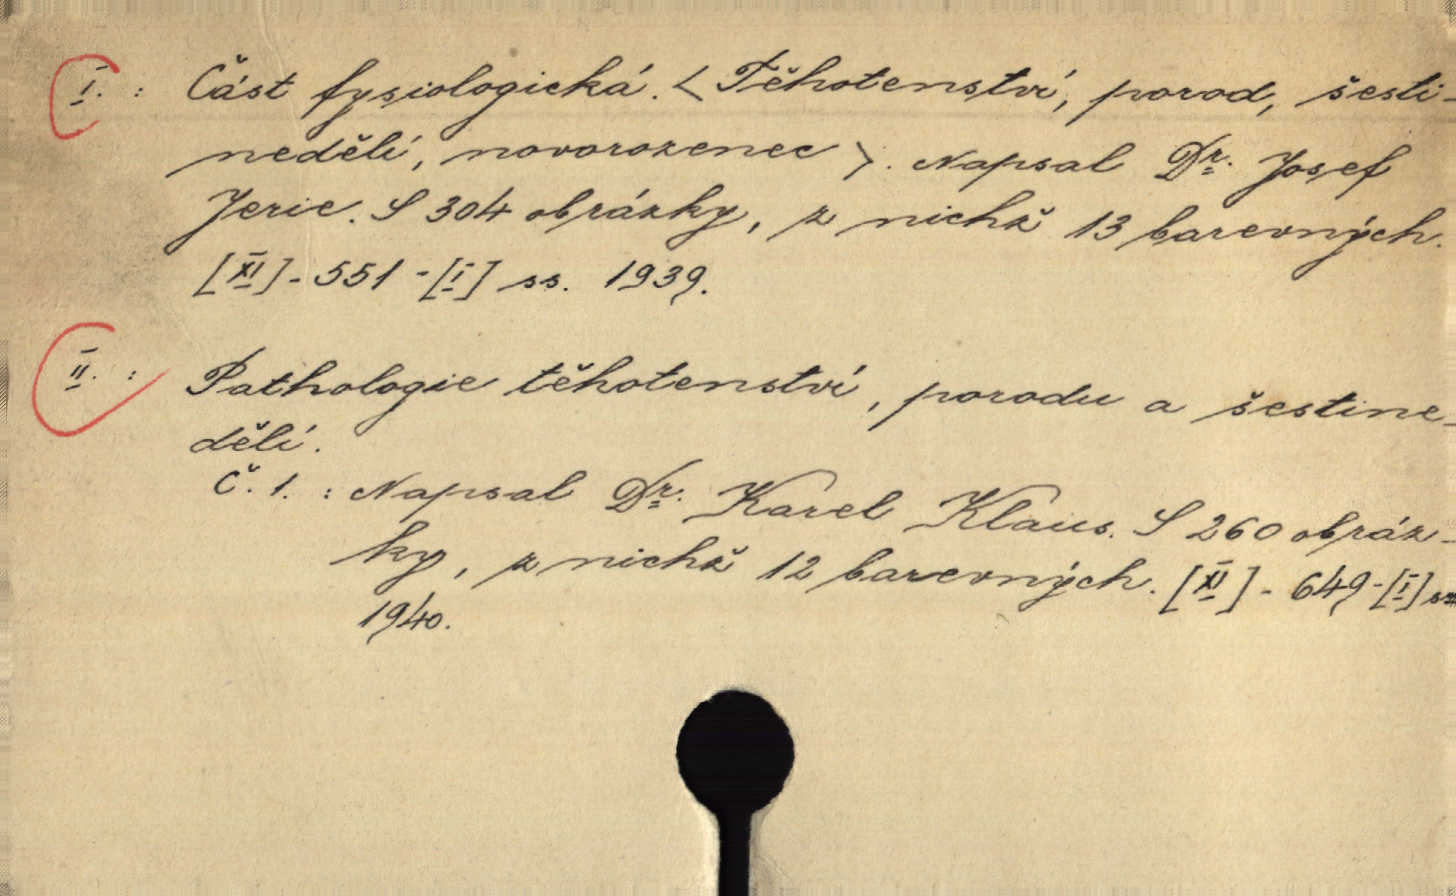 I. : Část fysiologická. <Těhotenství, porod, šesti-
nedělí, novorozenec>. Napsal Dr. Josef
Jerie. S 304 obrázky, z nichž 13 barevných.
[XI] - 551 - [I] ss. 1939.
II. : Pathologie těhotenství, porodu a šestine-
dělí.
Č. 1. : Napsal Dr. Karel Klaus. S 260 obráz-
ky, z nichž 12 barevných. [XI] - 649 - [I] ss
1940.